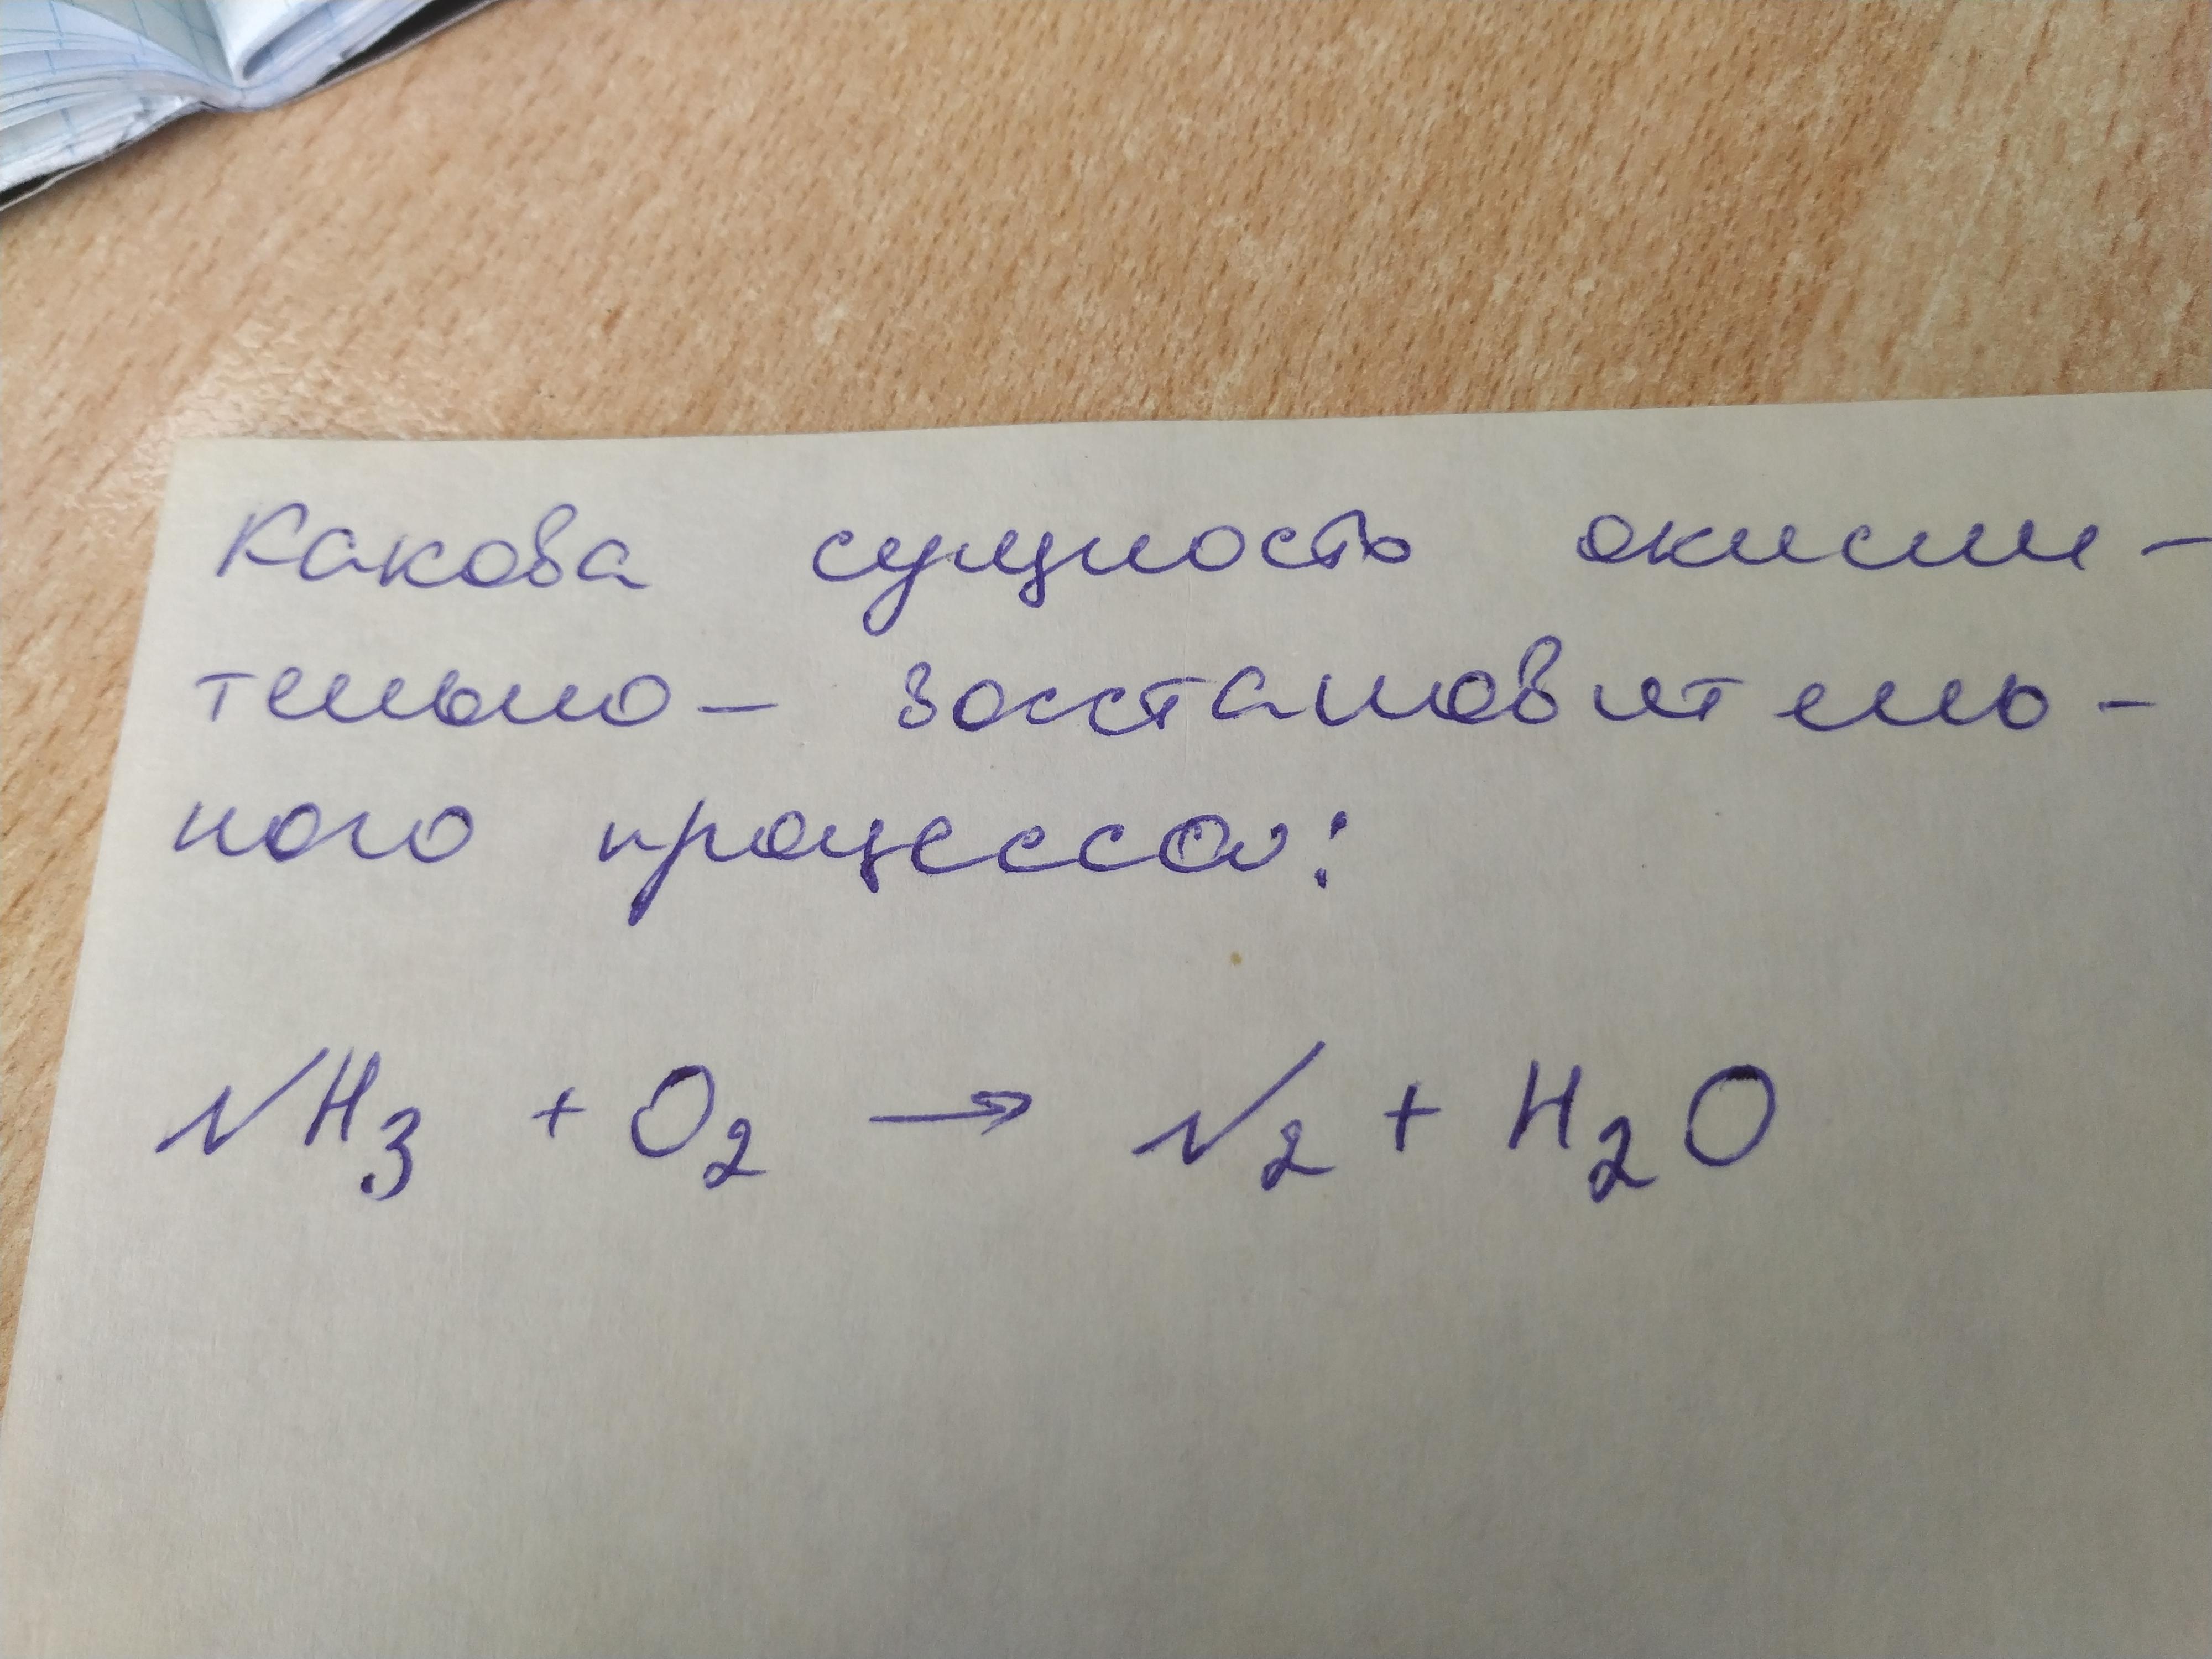 Какова сущность окисли-
тельно- восстановитель-
ного процесса:
NH₃ + O₂ → N₂ + H₂O